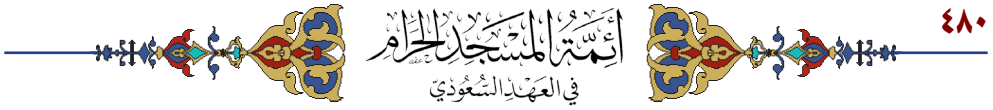 ٤٨٠
أَئِمَّةُ المَسْجِدِ الحَرَامِ
فِي العَهْدِ السُّعُودِيّ